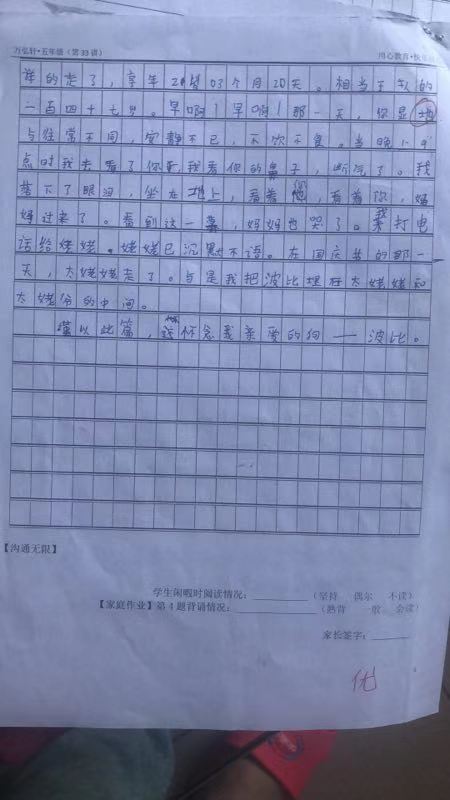 万弘轩·五年级（第33讲）
用心教育·快乐
样的走了，享年20岁03个月20天。相当于人的
一百四十七岁。早啊！早啊！那一天，你显地
与往常不同，安静不已，不饮不食。当晚1-9
点时我去看了你，我看你的鼻子，断气了。我
落下了眼泪，坐在地上，看着他，看着你，妈
妈过来了。看到这一幕，妈妈也哭了。我打电
话给姥姥。姥姥已沉默不语。在国庆节的那一
天，太姥姥走了。与是我把波比埋在太姥姥和
太姥爷的中间。
谨以此篇，怀念我亲爱的狗——波比。
【沟通无限】
学生闲暇时阅读情况：（坚持 偶尔 不读）
【家庭作业】第4题背诵情况：（熟背 一般 会读）
家长签字：
优